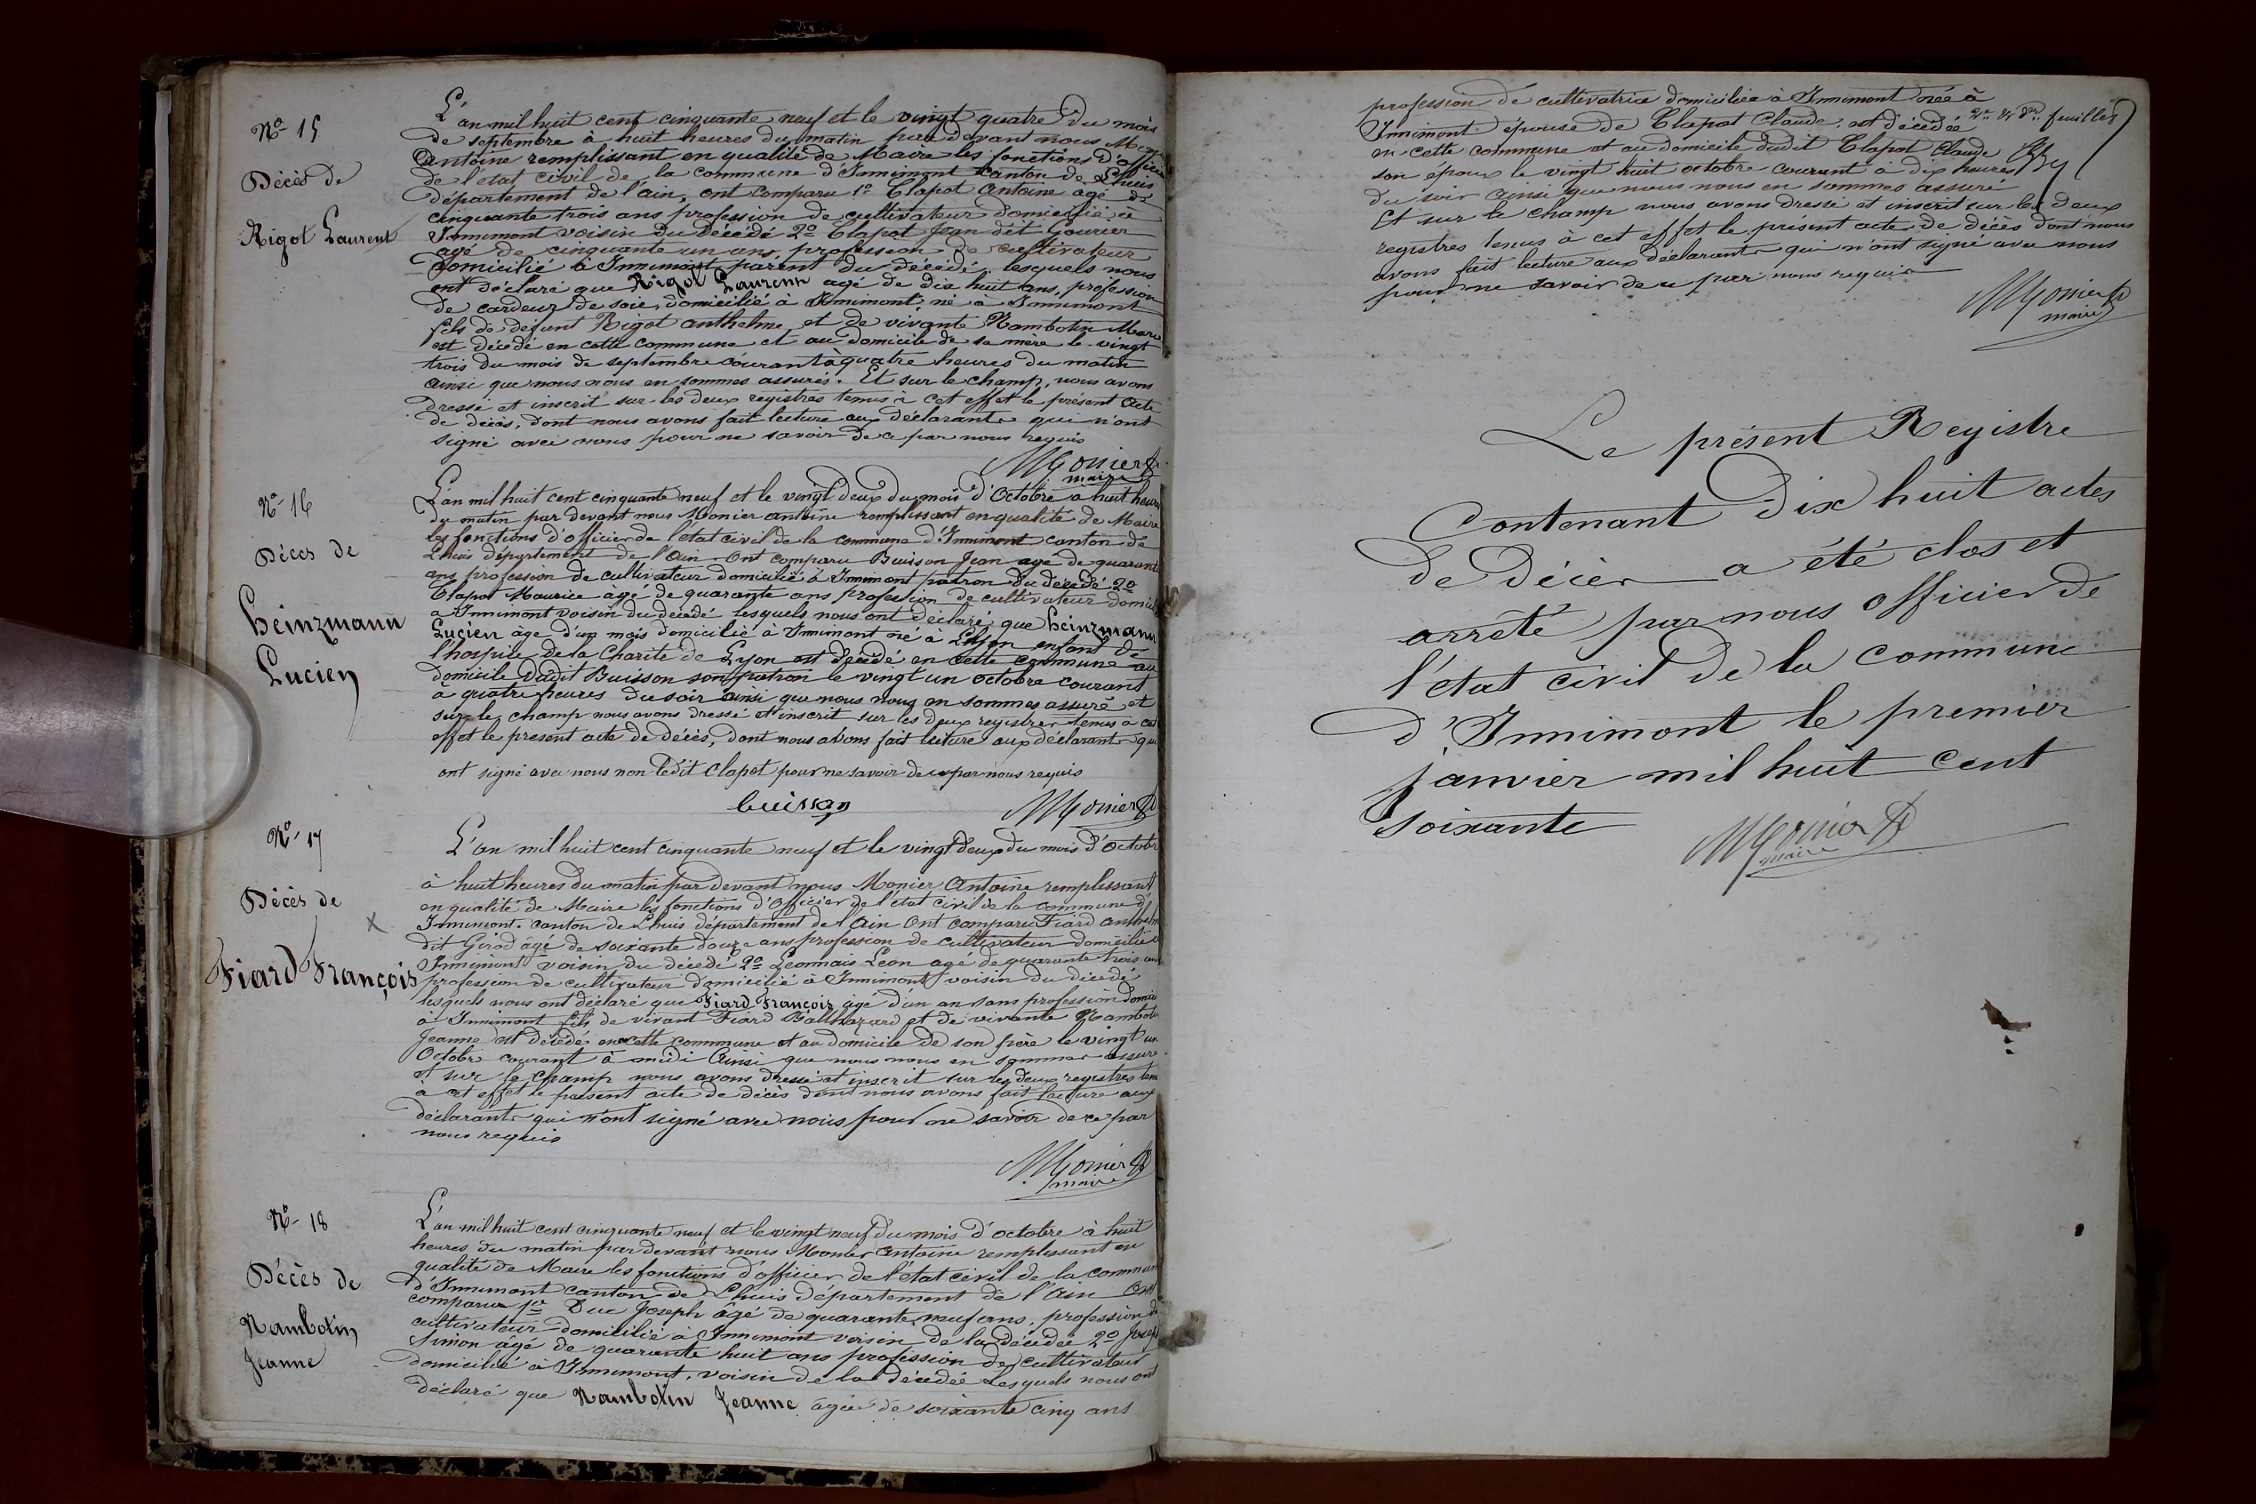 No 15
Décès de
Rigot Laurent
L'an mil huit cent cinquante neuf et le vingt quatre du mois
de septembre à huit heures du matin par devant nous
Antoine remplissant en qualité de Maire les fonctions d'officier
de l'état civil de la commune d'Innimont canton de Lhuis
département de l'ain, ont comparu 1o Clapot Antoine agé de
cinquante trois ans profession de cultivateur domicilié à
Innimont voisin du décédé 2o Clapot Jean dit Gourier
agé de cinquante un ans profession de cultivateur
domicilié à Innimont parent du décédé lesquels nous
ont déclaré que Rigot Laurent agé de dix huit ans, profession
de cardeur de soie, domicilié à Innimont, né à Innimont
fils de défunt Rigot anthelme et de vivante Nambotin Marie
est décédé en cette commune et au domicile de sa mère le vingt
trois du mois de septembre courant à quatre heures du matin
ainsi que nous nous en sommes assurés. Et sur le champ, nous avons
dressé et inscrit sur les deux registres tenus à cet effet le présent acte
de décès, dont nous avons fait lecture aux déclarants qui n'ont
signé avec nous pour ne savoir de ce par nous requis
Monier
maire
No 16
Décès de
Heinzmann
Lucien
L'an mil huit cent cinquante neuf et le vingt deux du mois d'Octobre a huit heures
du matin par devant nous Monier antoine remplissant en qualité de Maire
les fonctions d'officier de l'état civil de la commune d'Innimont canton de
Lhuis département de l'ain. Ont comparu Buisson Jean agé de quarante
ans profession de cultivateur domicilié à Innimont patron du décédé 2o
Clapot Maurice agé de quarante ans profession de cultivateur domicilié
a Innimont voisin du décédé lesquels nous ont déclaré que Heinzmann
Lucien âgé d'un mois domicilié à Innimont né à Lyon enfant de
l'hospice de la Charité de Lyon est décédé en cette commune au
domicile dudit Buisson son patron le vingt un octobre courant
à quatre heures du soir ainsi que nous nous en sommes assuré et
sur le champ nous avons dressé et inscrit sur les deux registres tenus à cet
effet le présent acte de décès, dont nous avons fait lecture aux déclarants qui
ont signé avec nous non ledit Clapot pour ne savoir de ce par nous requis
buisson Monier
No 17
Décès de
Fiard François
L'an mil huit cent cinquante neuf et le vingt deux du mois d'Octobre
à huit heures du matin par devant nous Monier Antoine remplissant
en qualité de Maire les fonctions d'Officier de l'état civil de la commune d'
Innimont. canton de Lhuis département de l'Ain Ont comparu Fiard anthelme
dit Girod âgé de soixante douze ans profession de cultivateur domicilié à
Innimont voisin du décédé 2o Léon agé de quarante trois ans
profession de cultivateur domicilié à Innimont voisin du décédé
lesquels nous ont déclaré que Fiard François âgé d'un an sans profession domicilié
à Innimont fils de vivant Fiard Balthazard et de vivante Nambotin
Jeanne est décédé en cette commune et au domicile de son père le vingt un
Octobre courant à midi Ainsi que nous nous en sommes assuré.
et sur le champ nous avons dressé et inscrit sur les deux registres tenus
à cet effet le présent acte de décès dont nous avons fait lecture aux
déclarants qui n'ont signé avec nous pour ne savoir de ce par
nous requis
Monier
maire
No 18
Décès de
Nambotin
Jeanne
L'an mil huit cent cinquante neuf et le vingt neuf du mois d'octobre à huit
heures du matin par devant nous Monier Antoine remplissant en
qualité de Maire les fonctions d'officier de l'état civil de la commune
d'Innimont canton de Lhuis département de l'Ain Ont
comparu 1er Duc Joseph âgé de quarante neuf ans, profession de
cultivateur domicilié à Innimont voisin de la décédée 2o Joseph
Simon âgé de quarante huit ans profession de cultivateur
domicilié à Innimont, voisin de la décédée lesquels nous ont
déclaré que Nambotin Jeanne agée de soixante cinq ans
profession de cultivatrice domiciliée à Innimont née à
Innimont épouse de Clapot Claude, est décédée
en cette commune et au domicile dudit Clapot Claude
son époux le vingt huit octobre courant à dix heures
du soir ainsi que nous nous en sommes assuré
Et sur le champ nous avons dressé et inscrit sur les deux
registres tenus à cet effet le présent acte de décès dont nous
avons fait lecture aux déclarants qui n'ont signé avec nous
pour ne savoir de ce par nous requis
feuillet
Monier
maire
Le présent Registre
Contenant Dix huit actes
de Décès a été clos et
arrêté par nous officier de
l'état civil de la commune
d'Innimont le premier
janvier mil huit cent
soixante
Monier
maire